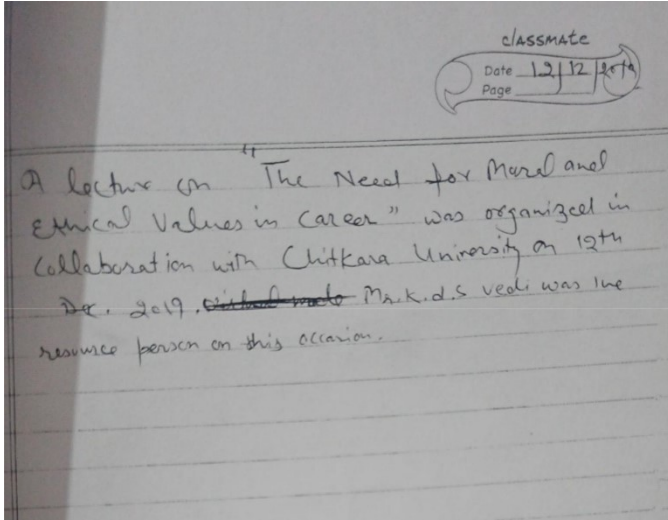 classmate
Date 12/12/2019
Page
A lecture on "The Need for Moral and
Ethical Values in Career" was organized in
Collaboration with Chitkara University on 12th
Dec. 2019. Mr. K.d.S vedi was the
resource person on this occasion.